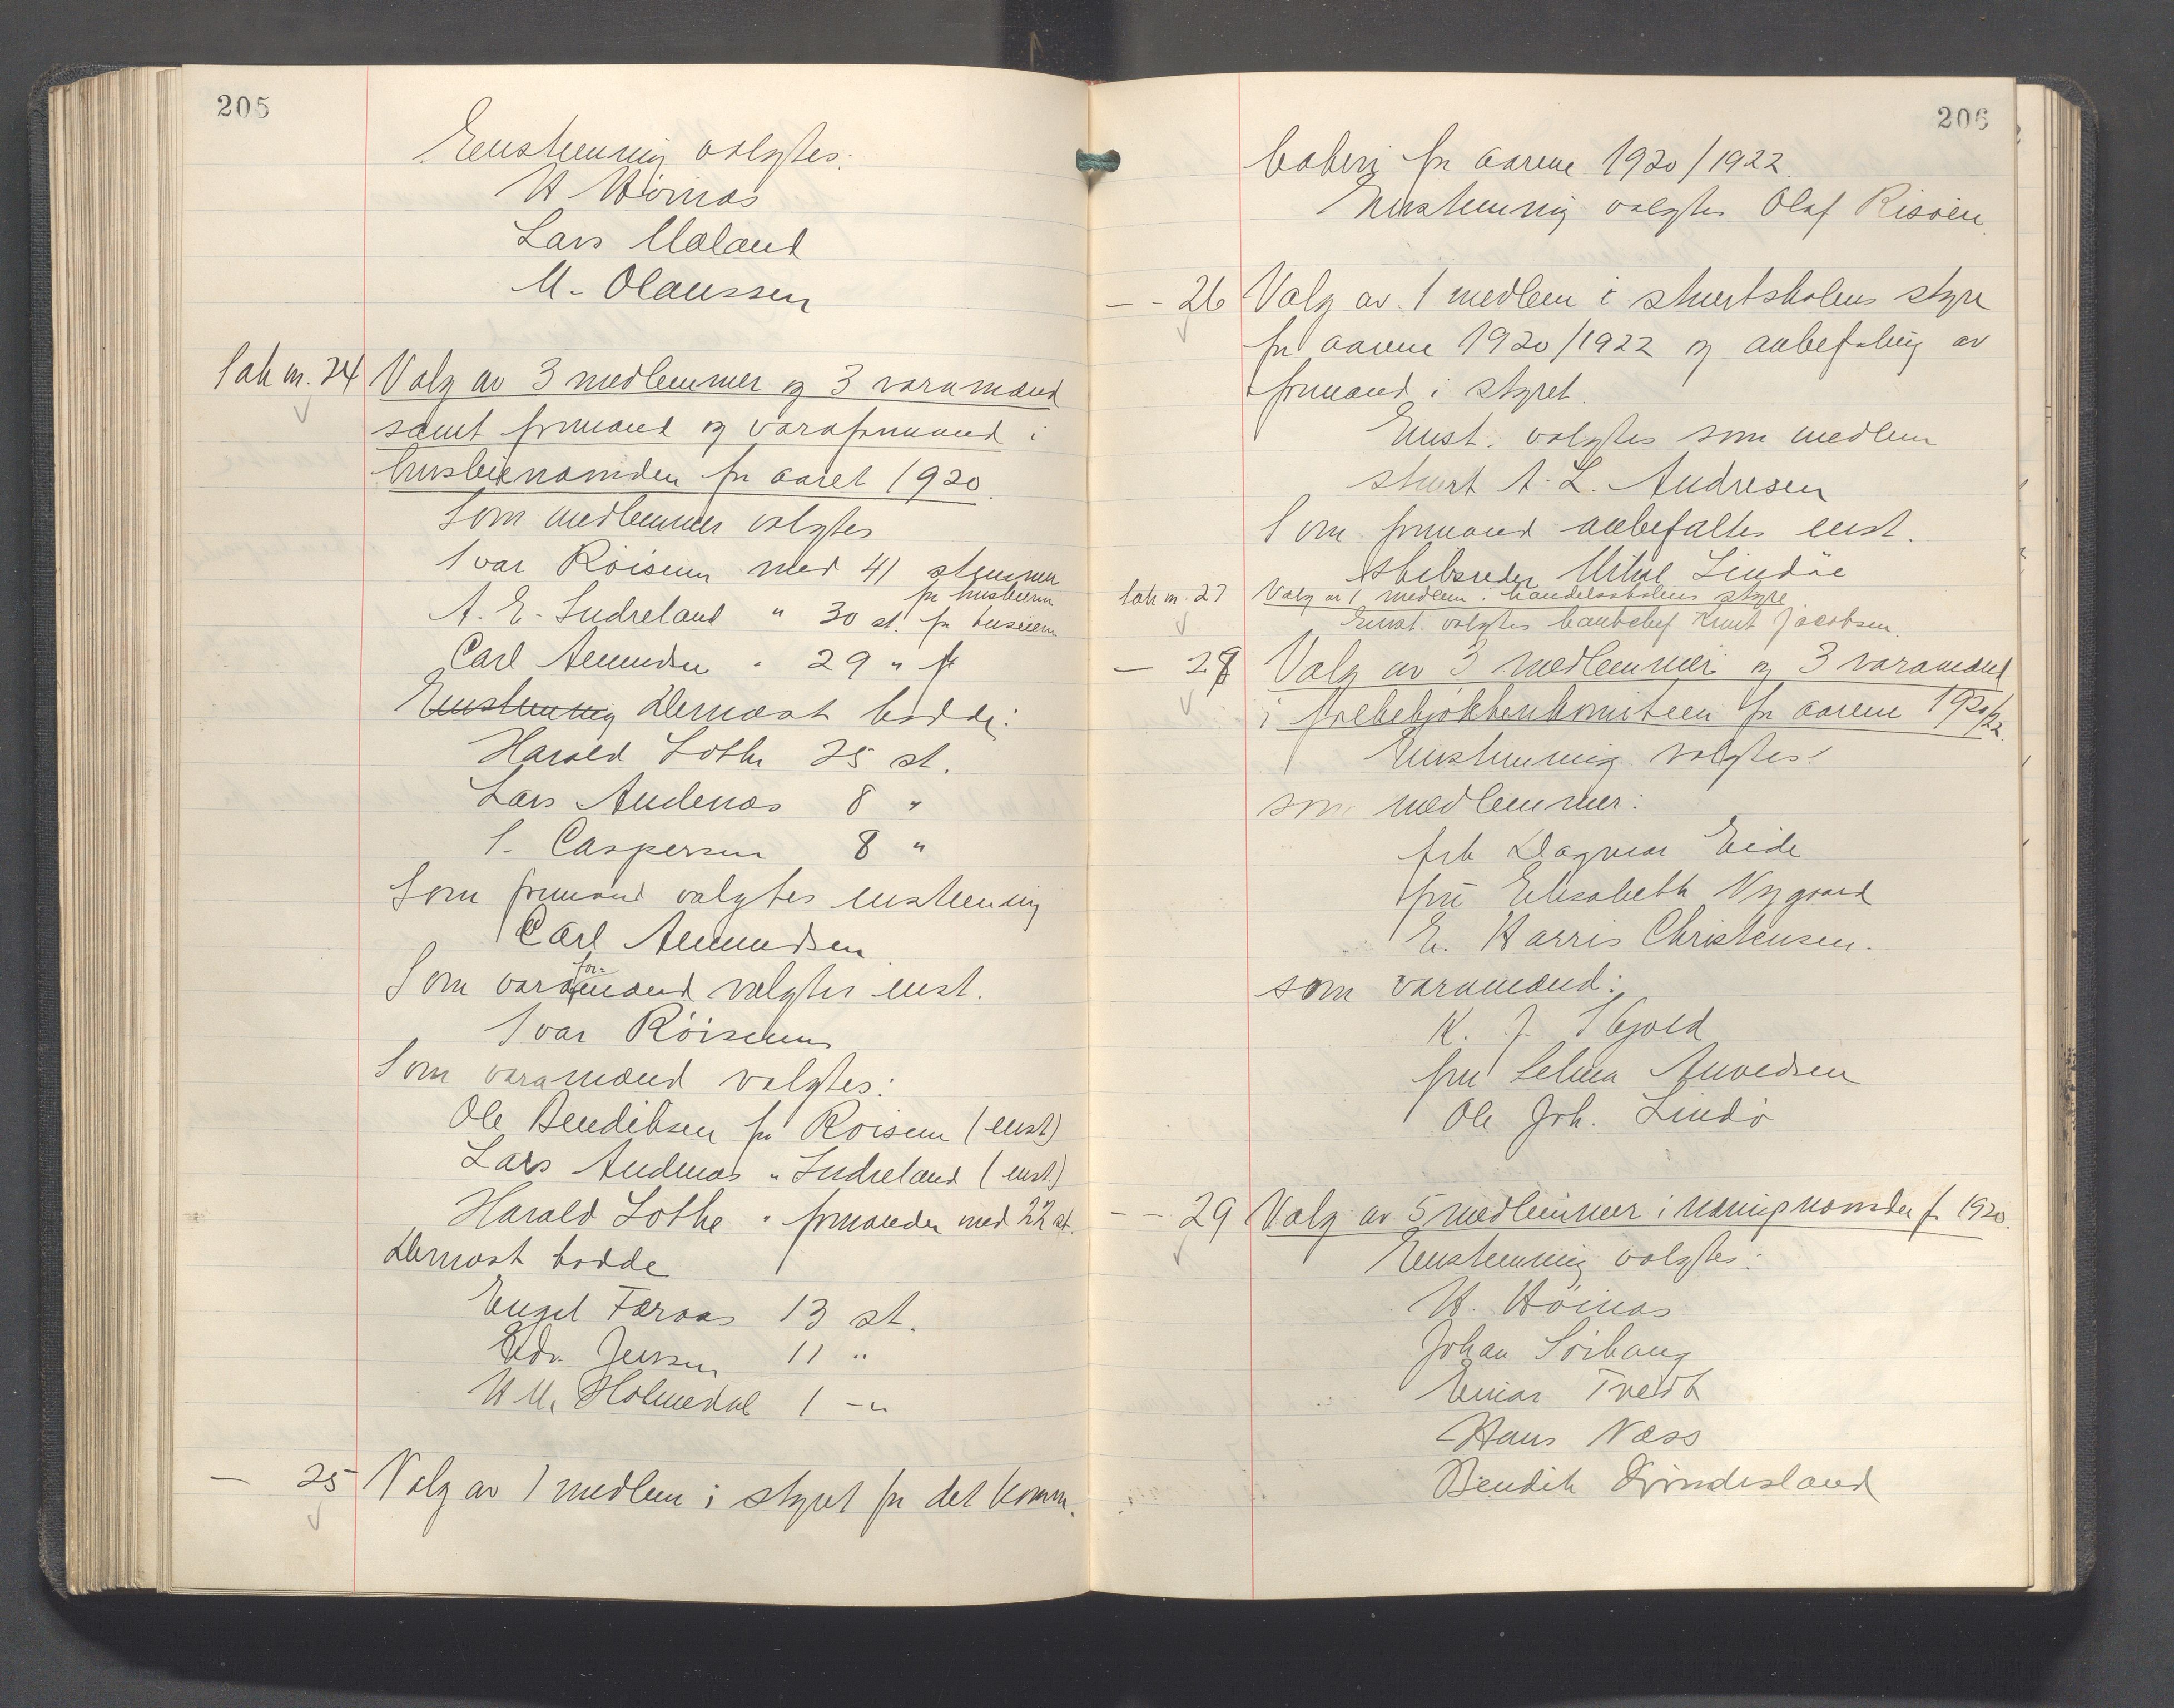 205
Enstemmig valgtes:
H Höinæs
Lars Mæland
M. Olaussen
Sak nr. 24 Valg av 3 medlemmer og 3 varamænd
samt formand og varaformand i
husleienævnden for aaret 1920.
Som medlemmer valgtes
Ivar Röisum med 41 stemmer
for husleiern
A. E. Indreland " 30 st. for huseiern
Carl Amundsen " 29 " fr
Enstemmig Dernæst hadde:
Harald Lothe 25 st.
Lars Audenæs 8 "
S. Caspersen 8 "
Som formand valgtes enstemmig
Carl Amundsen
Som varaformand valgtes enst.
Ivar Röisum
Som varamænd valgtes:
Ole Bendiksen for Roisum (enst)
Lars Audenæs " Indreland (enst.)
Harald Lothe " formanden med 22 st.
Dernæst hadde
Engel Færaas 13 st.
Edv. Jensen 11 "
H M. Holmedal 1 - "
— 25 Valg av 1 medlem i styret for det komm.
206
bakeri for aarene 1920/1922.
Enstemmig valgtes Olaf Risöen.
— - 26 Valg av 1 medlem i stuertskolens styre
for aarene 1920/1922 og anbefaling av
formand i styret.
Enst. valgtes som medlem
stuert A. L. Andresen
Som formand anbefaltes enst.
skibsreder Mikal Lindöe
Sak nr. 27 Valg av 1 medlem i handelsskolens styre
Enst. valgtes bankchef Knut Jacobsen.
— 28 Valg av 3 medlemmer og 3 varamænd
i folkekjökkenkomiteen for aarene 1920/22.
Enstemmig valgtes:
som medlemmer:
frk Dagmar Eide
fru Elisabeth Nygaard
E. Harris Christensen.
som varamænd:
K. J. Skjold
fru Selma Amundsen
Ole Joh. Lindö
— - 29 Valg av 5 medlemmer i næringsnævnden f. 1920.
Enstemmig valgtes:
H. Höinæs
Johan Sörhaug
Einar Tvedt
Hans Næss
Bendik Köndesland